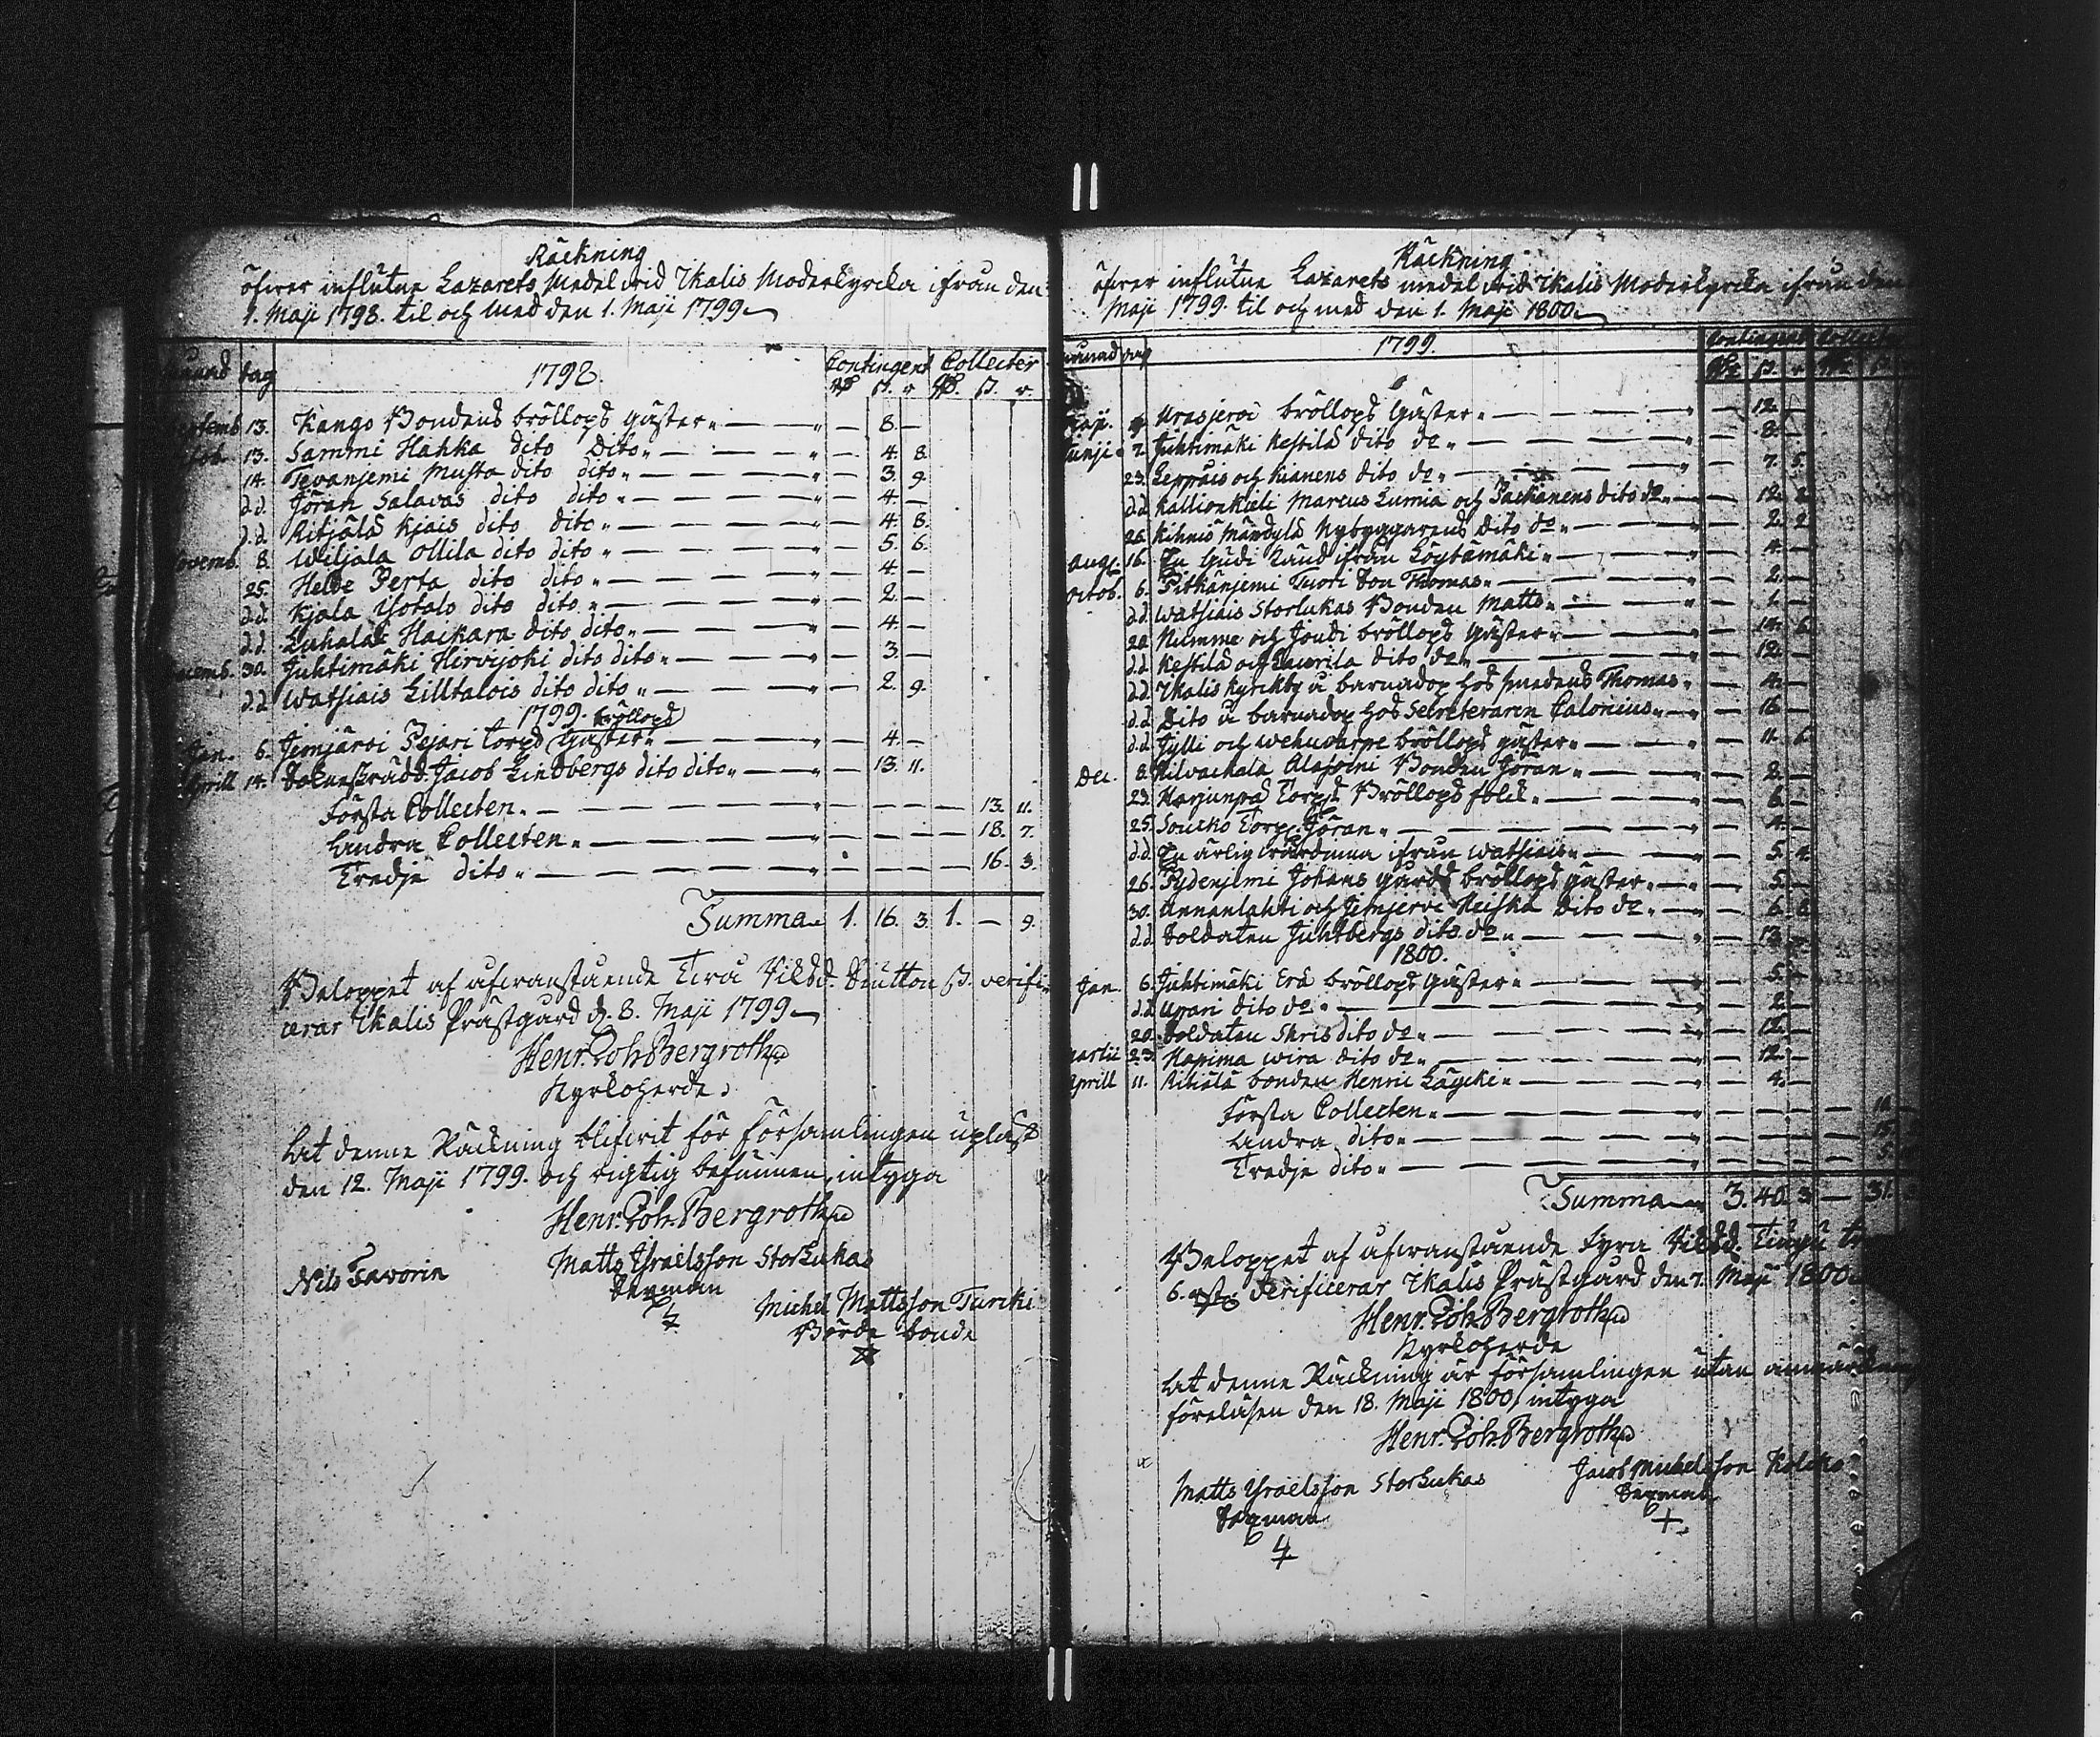 Räckning
öfwer influtne Lazarets Medel wid Ikalis Moderkyrcka ifrån den
1. Maji 1798. til och med den 1. Maji 1799.
dag 1798. Contingent Collecter
13. Kango Bondens bröllops gäster 8.
13. Sammi Hahka dito dito 4. 8.
14. Tevanjemi Musta dito dito 3. 9.
d.d. Jöran Salavas dito dito 4.
d.d. Ritjälä Kjais dito dito 4. 8.
8. Wiljala Ollila dito dito 5. 6.
25. Helde Perta dito dito 4.
d.d. Kjala Yotalo dito dito 2.
d.d. Luhalax Haikara dito dito 4.
30. Juhtimäki Hirvijoki dito dito 3.
d.d. Watsiais Lilltalois dito dito 2. 9.
1799.
Jan. 6. Jemjärvi Pejari torps bröllops Gäster 4.
Aprill 14. Jacob Lindbergs dito dito 13. 11.
Första Collecten 13. 11.
Andra Collecten 18. 7.
Tredje dito 16. 3.
Summa 1. 16. 3. 1. — 9.
Beloppet af ofwanstående Twå Riksd. Siutton ß. verifi-
cerar Ikalis Prästgård d. 8. Maji 1799.
Henr. Joh. Bergroth
Kyrkoherde
At denne Räckning blifwit för Församlingen upläst
den 12. Maji 1799. och rigtig befunnen, intyga
Henr. Joh. Bergroth
Nils Favorin
Matts Israelsson Storlukas
Sexman
Michel Mattsson Turcki
Bonde

Räckning
öfwer influtne Lazarets medel wid Ikalis Moderkyrcka ifrån den
Maji 1799. til och med den 1. Maji 1800.
dag 1799. Contingent
Maji. Krasjerwi bröllops Gäster 12.
Junji 7. Juhtimäki Kestilä dito do 8.
23. Leppäis och Kianens dito do 7. 5.
d.d. Kallionkieli Marcus Lumia och Packanens dito do 12. 2.
26. Kihniö Mändylä Nybyggarens dito do 2. 2.
Aug. 16. En Gudi Känd ifrån Löytämäki 4.
Octob. 6. Pitkänjemi Tuori Son Thomas 2.
d.d. Watsiais Storlukas Bonden Matts 1.
20. Numme och Joudi bröllops Gäster 14. 6.
d.d. Kestilä och Laurila dito do 12.
d.d. Ikalis Kyrckby å barnadop hos smedens Thomas 4.
d.d. Dito å barnadop hos Secreteraren Calonius 16
d.d. Jylli och Wehuwarpe bröllops gäster 11. 6.
Dec. 8. Kilvackala Alasoini Bonden Jöran 2.
23. Harjunpä Torps Bröllops folck 6.
25. Soucko Torp. Jöran 4.
d.d. En ärlig wärdinna ifrån Watsiais 5. 4.
26. Sydenjemi Johans gårds bröllops gäster 5.
30. Annanlahti och Jemjerve Heiska dito do 6. 6.
d.d. Soldaten Juhtbergs dito do 13.
1800.
Jan. 6. Juhtimäki Erä bröllops Gäster 5.
d.d. Upari dito do 2.
20. Soldaten Skris dito do 12.
Martii 23. Hapima wira dito do 12.
Aprill 11. Ritiälä bonden Henric Läycki 4.
Första Collecten
Andra dito 15.
Tredje dito 5.
Summa 3. 40. 3. — 31.
Beloppet af ofwanstående Fyra Riksd. Tiugu
6. rst. verificerar Ikalis Prästgård den 7. Maji 1800.
Henr. Joh. Bergroth
Kyrkoherde
At denne Räckning är församlingen utan anmärckning
föreläsen den 18. Maji 1800, intyga
Henr. Joh. Bergroth
Matts Israelsson Storlukas
Sexman
Jacob Michelsson Kolcko
Sexman